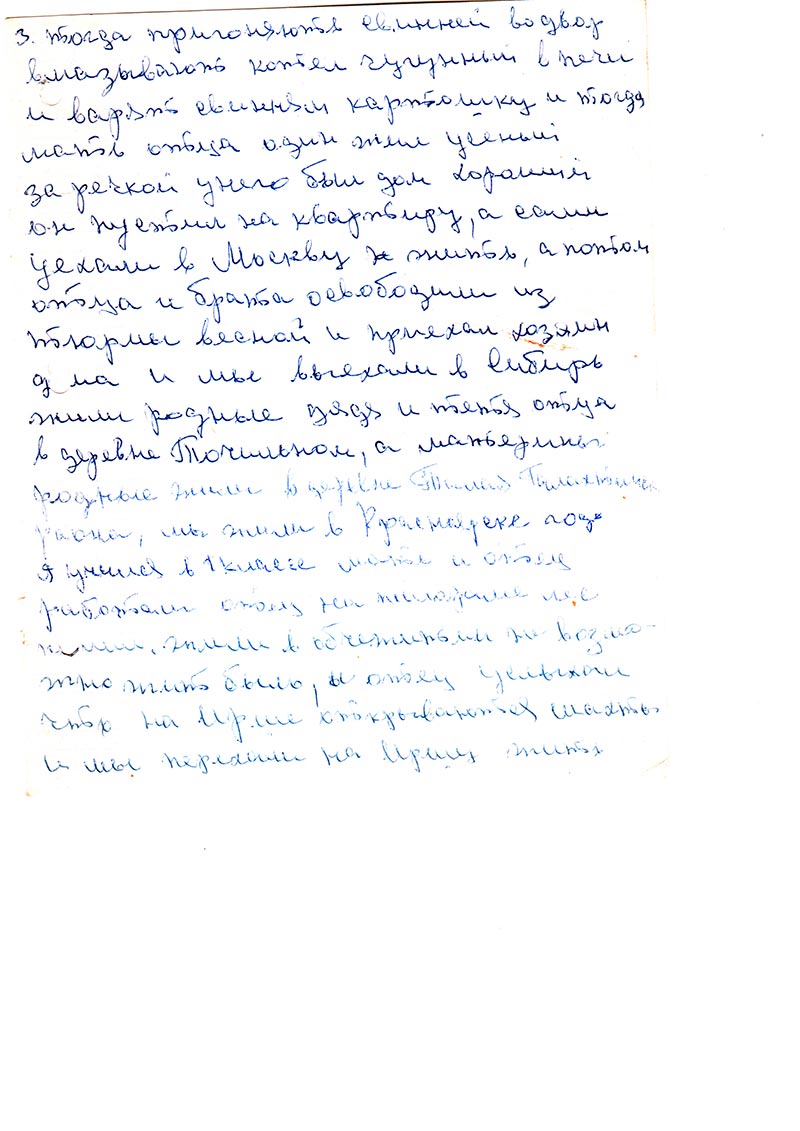 3. тогда пригоняють свинней во двор
вмазывають котел чугунный в печи
и варять свинням картошку и тогда
мать отца один жил учёный
за речкой унего был дом хороший
он пустил на квартиру, а сами
уехали в Москву жить, а потом
отца и брата освободили из
тюрмы весной и приехал хозяин
д ма и мы выехали в Сибирь
жили родные дядя и тетя отца
в деревне Точильном, а материны
родные жили в деревне
раона, мы жили в Красноярске год
я учился в 1 класе мать и отец
работали отец на пилораме
жили в обчежитьи не возмо-
жно жить было, и отец услыхал
что на Ирше открываются шахты
и мы перехали на Иршу жить